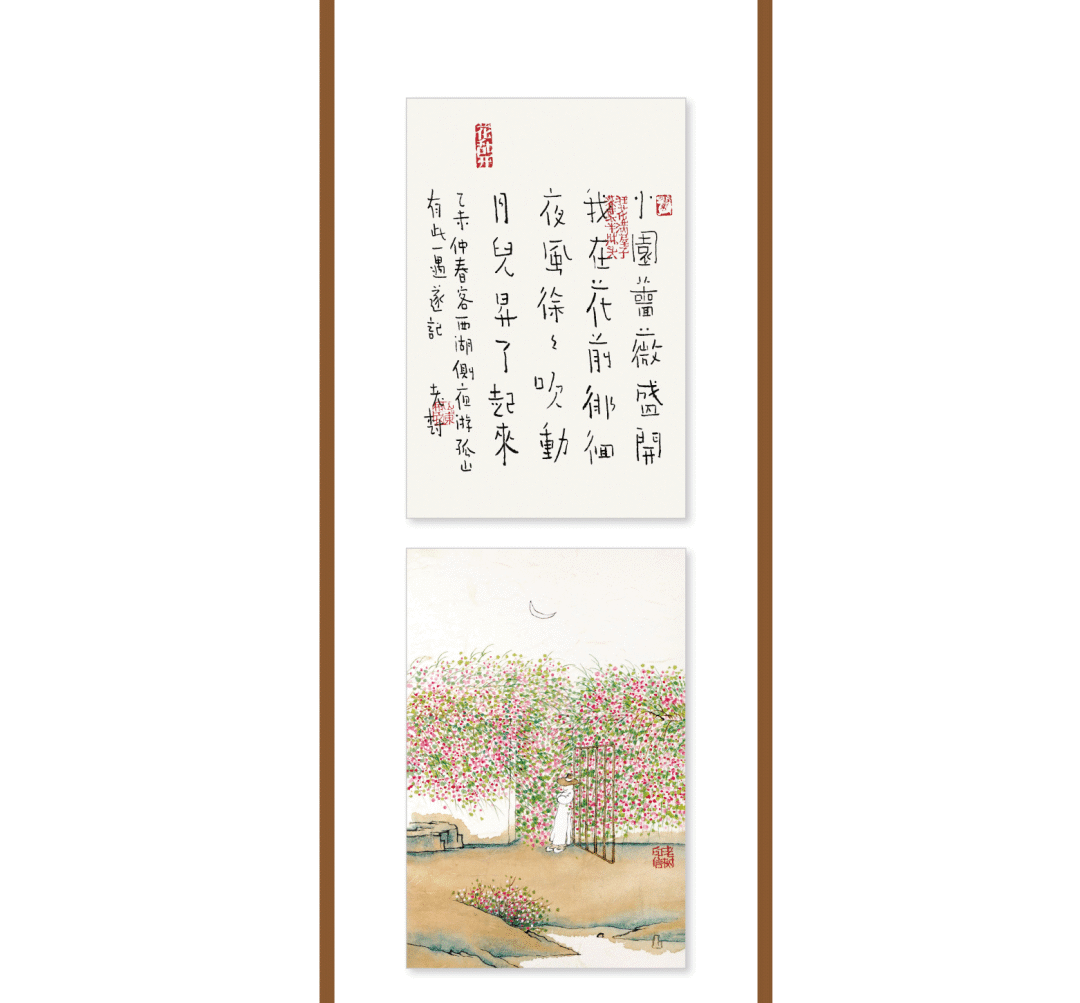 小園薔薇盛開
我在花前徘徊
夜風徐〻吹動
月兒昇了起來
乙未仲春客西湖側夜游孤山
有此一遇遂記 老樹
花乱开
老树印信